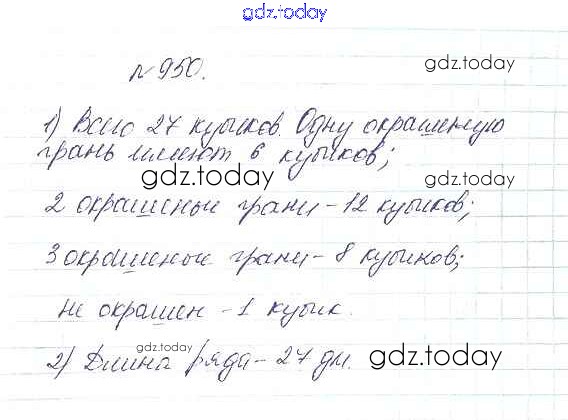 gdz.today
№950.
gdz.today
1) Всего 27 кубиков. Одну окрашеную
грань имеют 6 кубиков;
gdz.today
gdz.today
2 окрашеные грани - 12 кубиков;
3 окрашеные грани - 8 кубиков;
Не окрашен - 1 кубик.
gdz.today
2) Длина ряда - 27 дм.
gdz.today